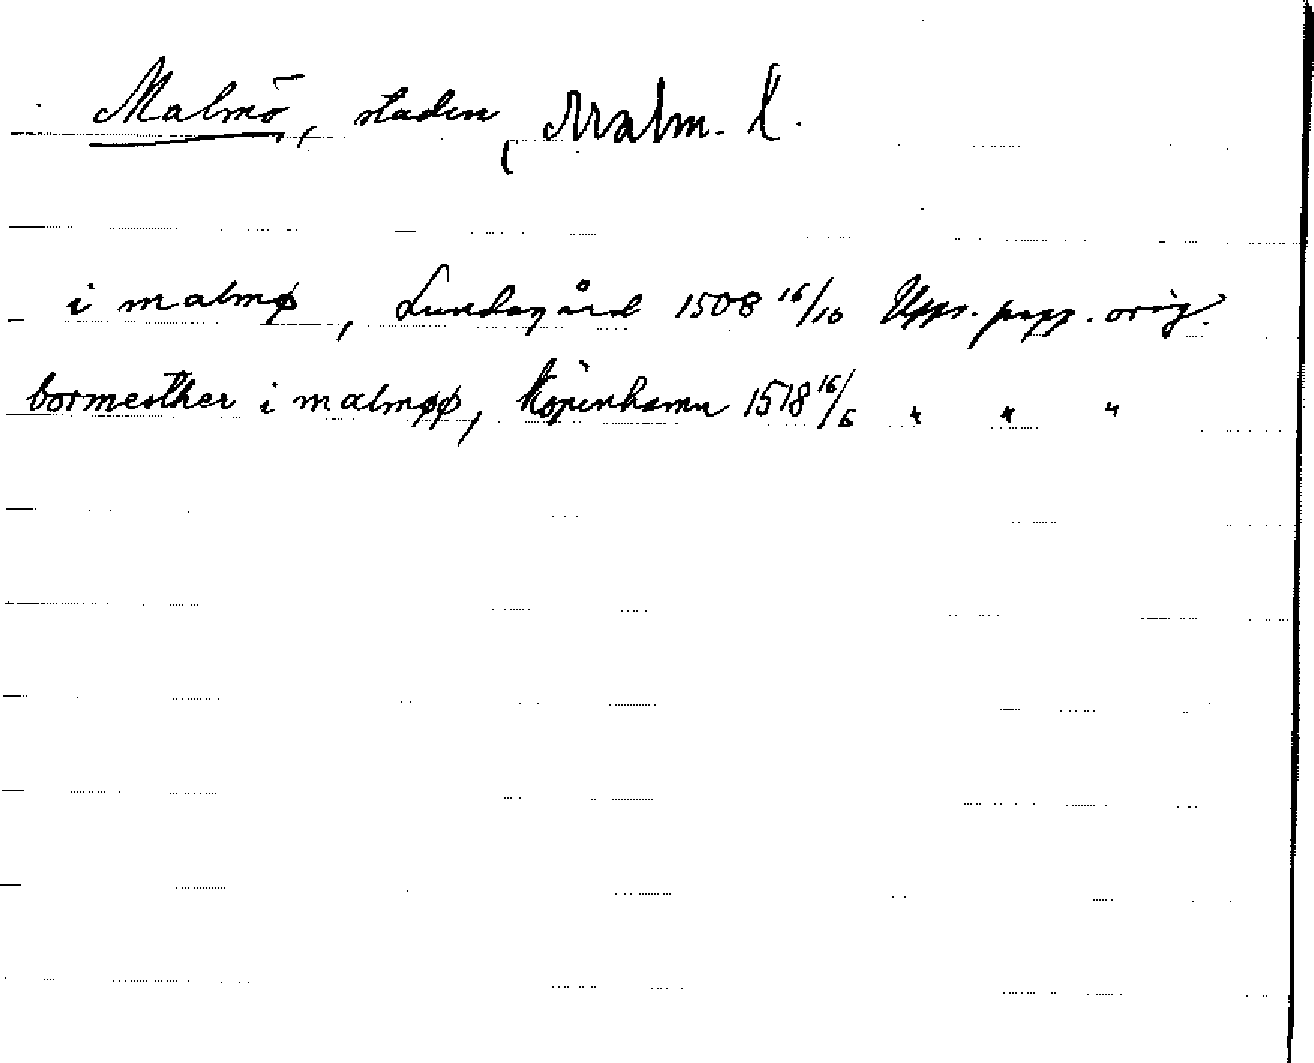 Malmö, staden, Malm. l.
i malmø, Lundagård 1508 16/10 Upps. papp. orig.
bormesther i malmøø, Köpenhamn 1518 16/6 " " "